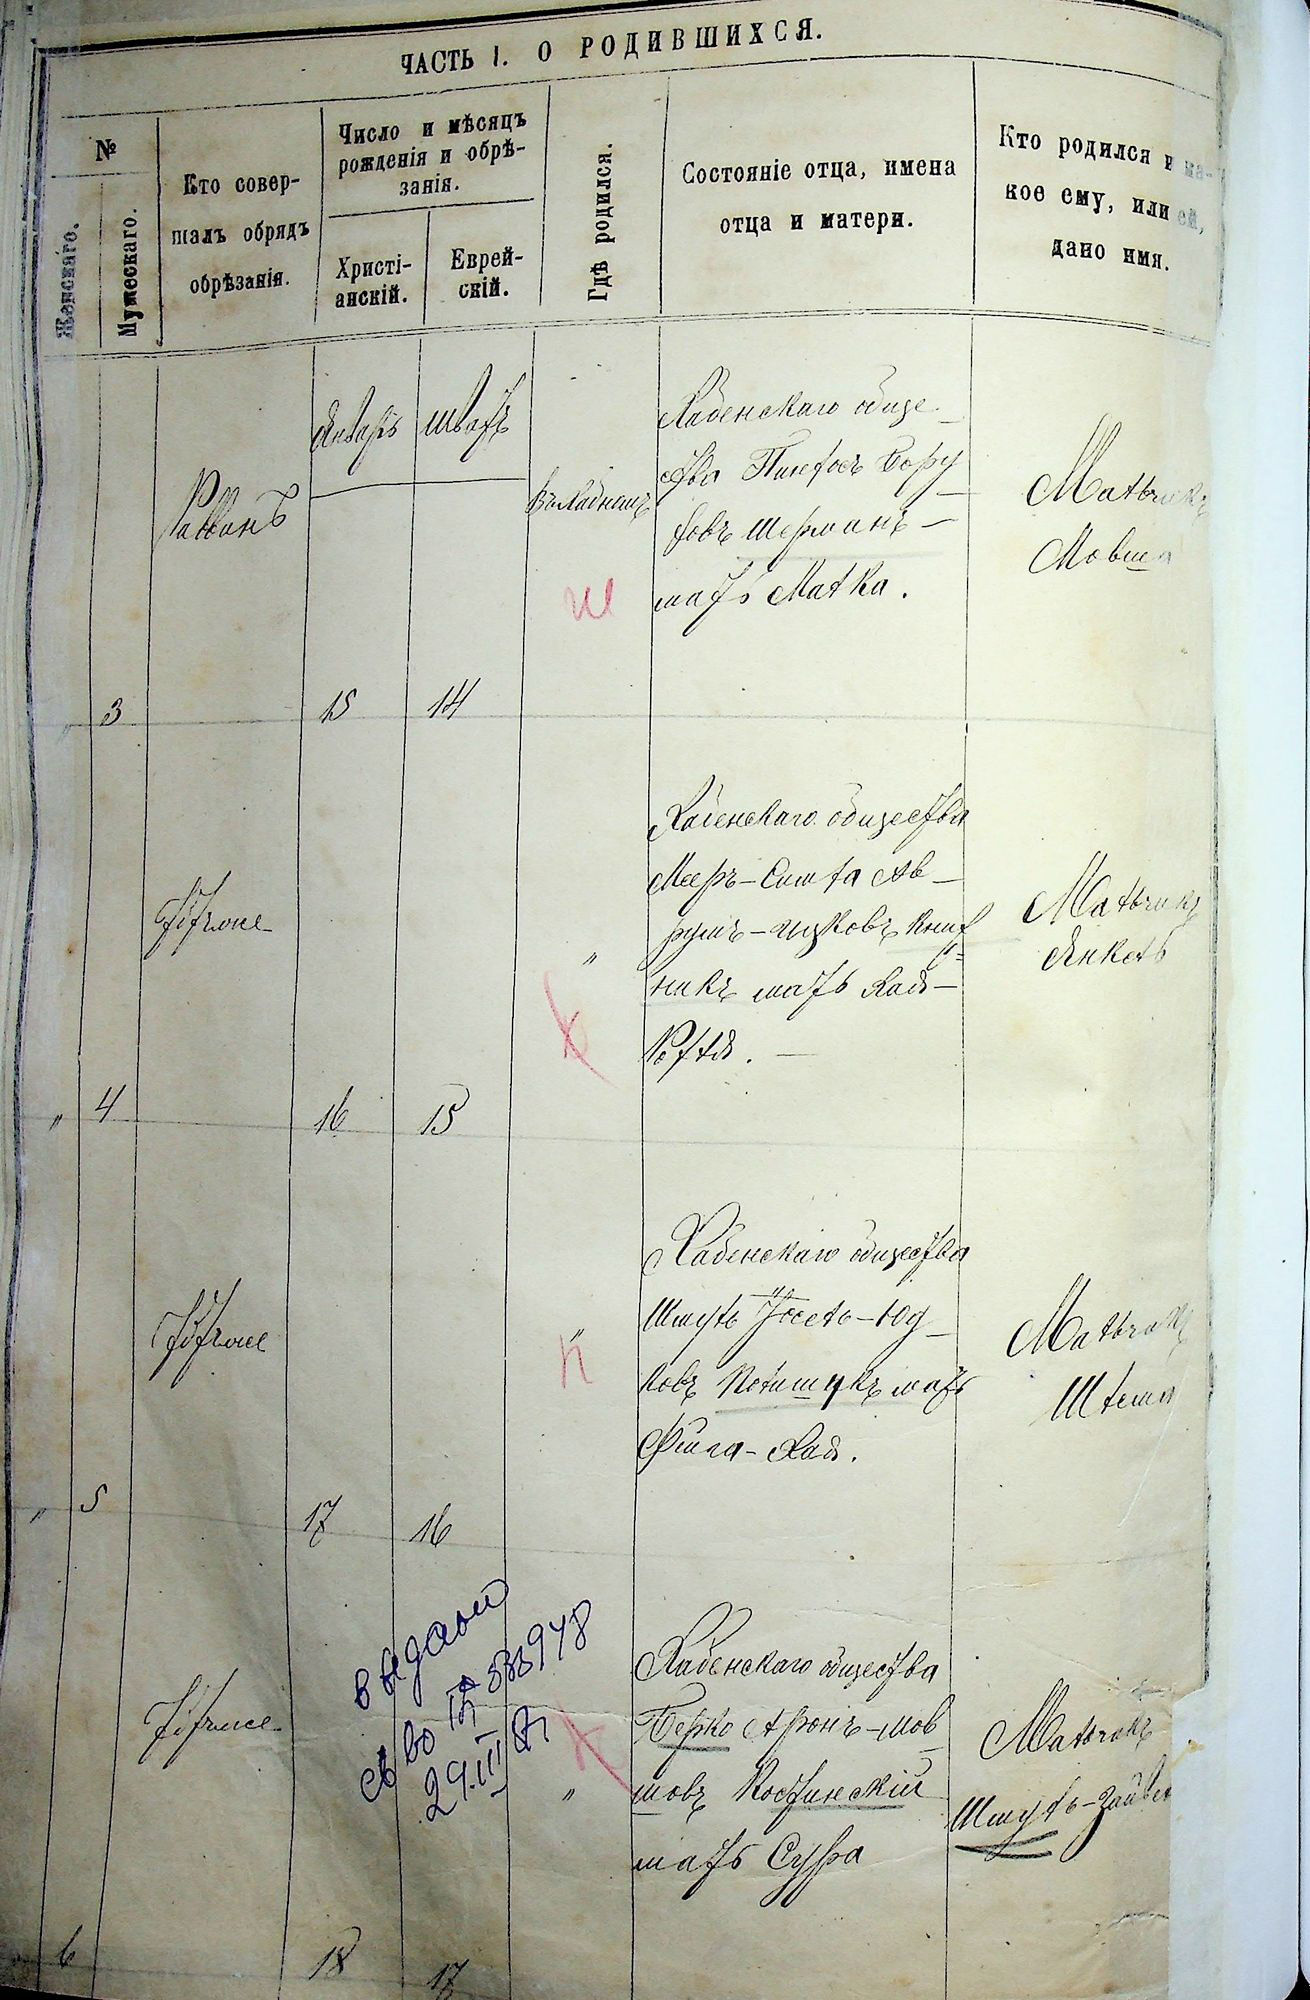 ЧАСТЬ I. О РОДИВШИХСЯ.
№
Женскаго.
Мужескаго.
Кто совер-
шалъ обрядъ
обрѣзанія.
Число и мѣсяцъ
рожденія и обрѣ-
занія.
Христі-
анскій.
Еврей-
скій.
Гдѣ родился.
Состояніе отца, имена
отца и матери.
Кто родился и ка-
кое ему, или ей,
дано имя.
Январь
Шватъ
3
15
14
Хабенскаго обще-
ства Пинхосъ Бору
ховъ Шерманъ
мать Малка.
Мальчикъ
Мовша
Ш
" 4
16
15
"
Хабенскаго общества
Мееръ-Симха Ав-
румъ-Ицковъ
никъ мать Хая-
Мальчикъ
Янкель
К
" 5
17
16
"
Хабенскаго общества
Шмуль Іосель-Юд
ковъ мать
Фейга-Хая.
Мальчикъ
Шлема
П
6
18
17
"
Хабенскаго общества
Берко Аронъ-Мов
шовъ Костинскій
мать Сура
Мальчикъ
Шмуль-Зайвел
К
выдано
св во
29.III